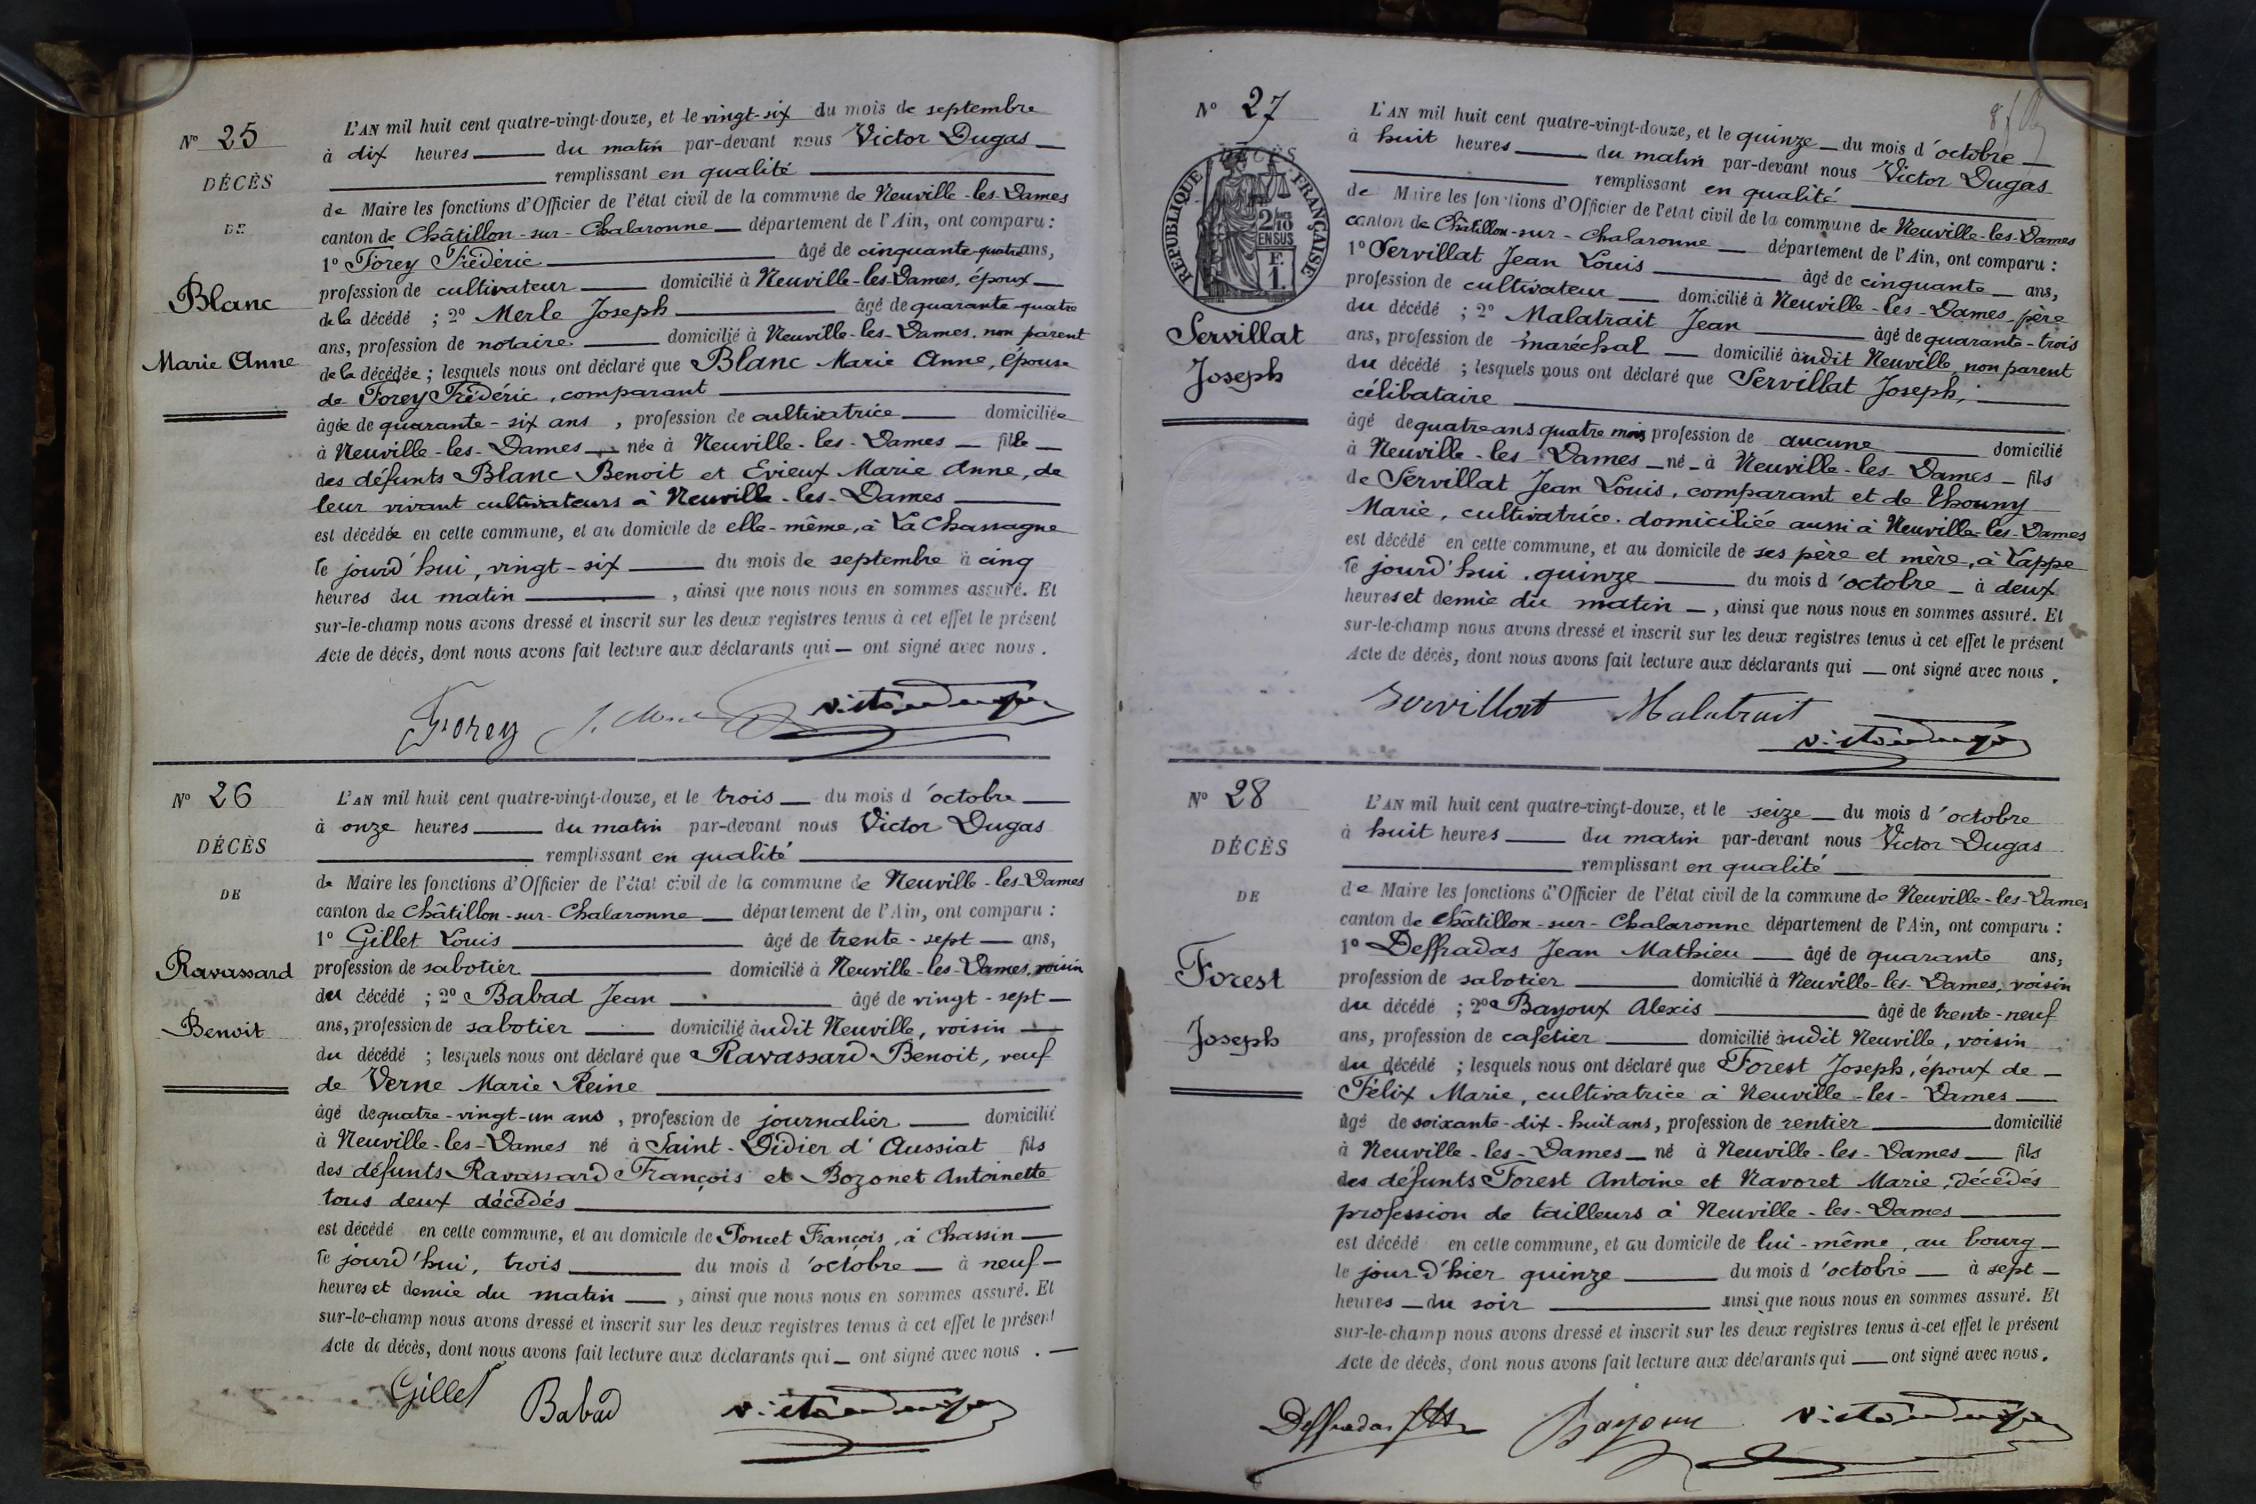 N° 25
DÉCÈS
DE
Blanc
Marie Anne
L'AN mil huit cent quatre-vingt-douze, et le vingt-six du mois de septembre
à dix heures du matin par-devant nous Victor Dugas
remplissant en qualité
de Maire les fonctions d'Officier de l'état civil de la commune de Neuville-les-Dames
canton de Châtillon-sur-Chalaronne département de l'Ain, ont comparu :
1° Forey Frédéric âgé de cinquante-quatre ans,
profession de cultivateur domicilié à Neuville-les-Dames, époux
de la décédé ; 2° Merle Joseph âgé de quarante-quatre
ans, profession de notaire domicilié à Neuville-les-Dames, non parent
de la décédée ; lesquels nous ont déclaré que Blanc Marie Anne, épouse
de Forey Frédéric, comparant
âgée de quarante-six ans, profession de cultivatrice domiciliée
à Neuville-les-Dames née à Neuville-les-Dames fille
des défunts Blanc Benoit et Evieux Marie Anne, de
leur vivant cultivateurs à Neuville-les-Dames
est décédée en cette commune, et au domicile de elle-même, à La Chassagne
le jourd'hui, vingt-six du mois de septembre à cinq
heures du matin, ainsi que nous nous en sommes assuré. Et
sur-le-champ nous avons dressé et inscrit sur les deux registres tenus à cet effet le présent
Acte de décès, dont nous avons fait lecture aux déclarants qui — ont signé avec nous.
Forey
N° 26
DÉCÈS
DE
Ravassard
Benoit
L'AN mil huit cent quatre-vingt-douze, et le trois du mois d'octobre
à onze heures du matin par-devant nous Victor Dugas
remplissant en qualité
de Maire les fonctions d'Officier de l'état civil de la commune de Neuville-les-Dames
canton de Châtillon-sur-Chalaronne département de l'Ain, ont comparu :
1° Gillet Louis âgé de trente-sept ans,
profession de sabotier domicilié à Neuville-les-Dames, voisin
du décédé ; 2° Babad Jean âgé de vingt-sept
ans, profession de sabotier domicilié audit Neuville, voisin
du décédé ; lesquels nous ont déclaré que Ravassard Benoit, veuf
de Verne Marie Reine
âgé de quatre-vingt-un ans, profession de journalier domicilié
à Neuville-les-Dames né à Saint-Didier d'Aussiat fils
des défunts Ravassard François et Bozonet Antoinette
tous deux décédés
est décédé en cette commune, et au domicile de Poncet François, à Chassin
le jourd'hui, trois du mois d'octobre à neuf
heures et demie du matin, ainsi que nous nous en sommes assuré. Et
sur-le-champ nous avons dressé et inscrit sur les deux registres tenus à cet effet le présent
Acte de décès, dont nous avons fait lecture aux déclarants qui — ont signé avec nous.
Gillet Babad
N° 27
DÉCÈS
RÉPUBLIQUE FRANÇAISE
2/10
EN SUS
F.
1.
Servillat
Joseph
L'AN mil huit cent quatre-vingt-douze, et le quinze du mois d'octobre
à huit heures du matin par-devant nous Victor Dugas
remplissant en qualité
de Maire les fonctions d'Officier de l'état civil de la commune de Neuville-les-Dames
canton de Châtillon-sur-Chalaronne département de l'Ain, ont comparu :
1° Servillat Jean Louis âgé de cinquante ans,
profession de cultivateur domicilié à Neuville-les-Dames père
du décédé ; 2° Malatrait Jean âgé de quarante-trois
ans, profession de maréchal domicilié audit Neuville, non parent
du décédé ; lesquels nous ont déclaré que Servillat Joseph,
célibataire
âgé de quatre ans quatre mois profession de aucune domicilié
à Neuville-les-Dames né à Neuville-les-Dames fils
de Servillat Jean Louis, comparant et de Thouny
Marie, cultivatrice, domiciliée aussi à Neuville-les-Dames
est décédé en cette commune, et au domicile de ses père et mère, à Lappe
le jourd'hui, quinze du mois d'octobre à deux
heures et demie du matin, ainsi que nous nous en sommes assuré. Et
sur-le-champ nous avons dressé et inscrit sur les deux registres tenus à cet effet le présent
Acte de décès, dont nous avons fait lecture aux déclarants qui — ont signé avec nous.
Servillat Malatrait
N° 28
DÉCÈS
DE
Forest
Joseph
L'AN mil huit cent quatre-vingt-douze, et le seize du mois d'octobre
à huit heures du matin par-devant nous Victor Dugas
remplissant en qualité
de Maire les fonctions d'Officier de l'état civil de la commune de Neuville-les-Dames
canton de Châtillon-sur-Chalaronne département de l'Ain, ont comparu :
1° Deffradas Jean Mathieu âgé de quarante ans,
profession de sabotier domicilié à Neuville-les-Dames, voisin
du décédé ; 2° Bayoux Alexis âgé de trente-neuf
ans, profession de cafetier domicilié audit Neuville, voisin
du décédé ; lesquels nous ont déclaré que Forest Joseph, époux de
Félix Marie, cultivatrice à Neuville-les-Dames
âgé de soixante-dix-huit ans, profession de rentier domicilié
à Neuville-les-Dames né à Neuville-les-Dames fils
des défunts Forest Antoine et Navoret Marie, décédés
profession de tailleurs à Neuville-les-Dames
est décédé en cette commune, et au domicile de lui-même, au bourg
le jour d'hier quinze du mois d'octobre à sept
heures du soir ainsi que nous nous en sommes assuré. Et
sur-le-champ nous avons dressé et inscrit sur les deux registres tenus à cet effet le présent
Acte de décès, dont nous avons fait lecture aux déclarants qui — ont signé avec nous.
Deffradas Bayoux